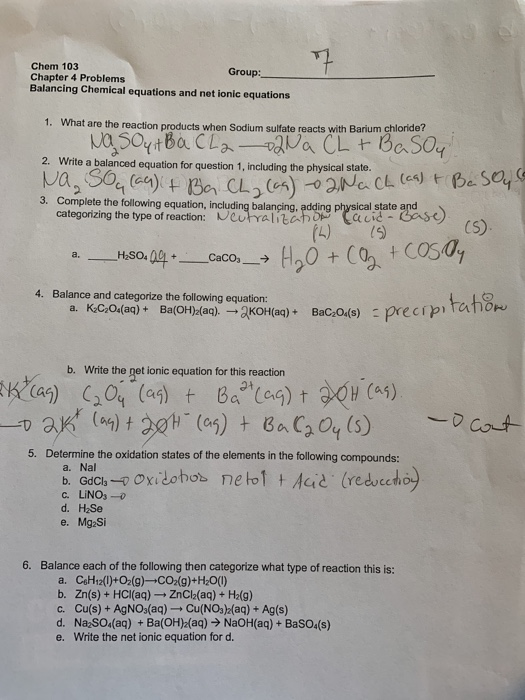 7
Chem 103
Group:
Chapter 4 Problems
Balancing Chemical equations and net ionic equations
1. What are the reaction products when Sodium sulfate reacts with Barium chloride?
Na₂SO₄ + BaCL₂ → 2NaCL + BaSO₄
2. Write a balanced equation for question 1, including the physical state.
Na₂SO₄ (aq) + BaCL₂ (aq) → 2NaCL (aq) + BaSO₄ S
3. Complete the following equation, including balancing, adding physical state and
categorizing the type of reaction: Neutralization (acid - Base)
(L) (S) (S)
a. ____H₂SO₄ aq + ____CaCO₃ __→ H₂O + CO₂ + COSO₄
4. Balance and categorize the following equation:
a. K₂C₂O₄(aq) + Ba(OH)₂(aq). → 2KOH(aq) + BaC₂O₄(s) = precipitation
b. Write the net ionic equation for this reaction
2K⁺(aq) C₂O₄⁻² (aq) + Ba²⁺(aq) + 2OH⁻(aq)
→ 2K⁺ (aq) + 2OH⁻ (aq) + BaC₂O₄ (s) → cont
5. Determine the oxidation states of the elements in the following compounds:
a. NaI
b. GdCl₃ → oxidation metal + Acid (reduction)
c. LiNO₃ →
d. H₂Se
e. Mg₂Si
6. Balance each of the following then categorize what type of reaction this is:
a. C₆H₁₂(l)+O₂(g)→CO₂(g)+H₂O(l)
b. Zn(s) + HCl(aq) → ZnCl₂(aq) + H₂(g)
c. Cu(s) + AgNO₃(aq) → Cu(NO₃)₂(aq) + Ag(s)
d. Na₂SO₄(aq) + Ba(OH)₂(aq) → NaOH(aq) + BaSO₄(s)
e. Write the net ionic equation for d.